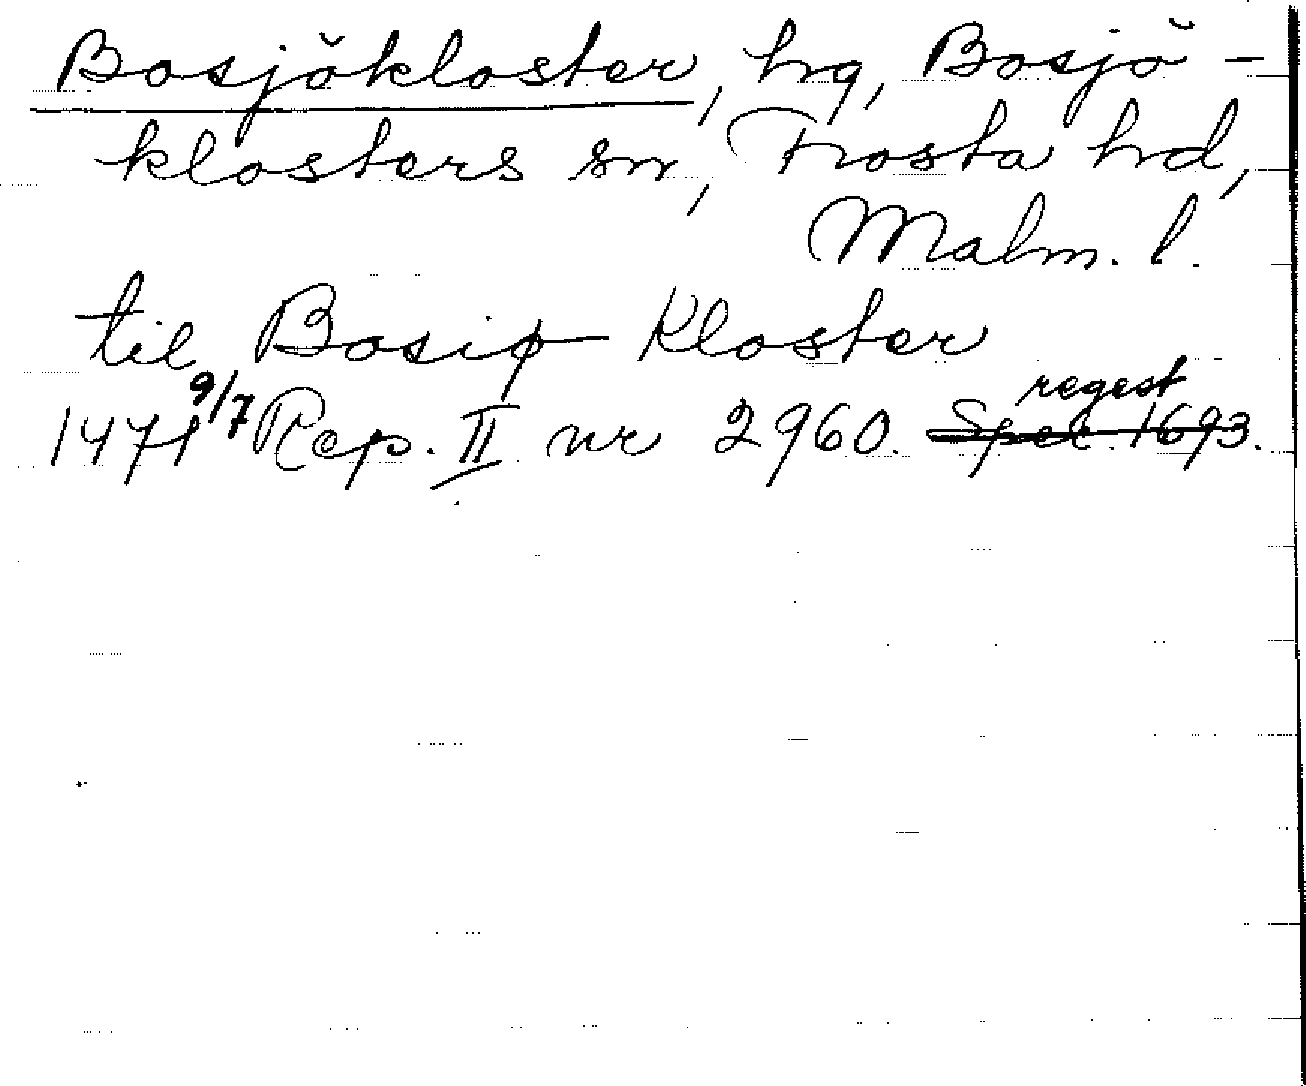 Bosjökloster, hg, Bosjö-
klosters sn, Frosta hd,
Malm. l.
til Bosiø Kloster
1471 9/7 Rep. II nr 2960. Spec. 1693. regest